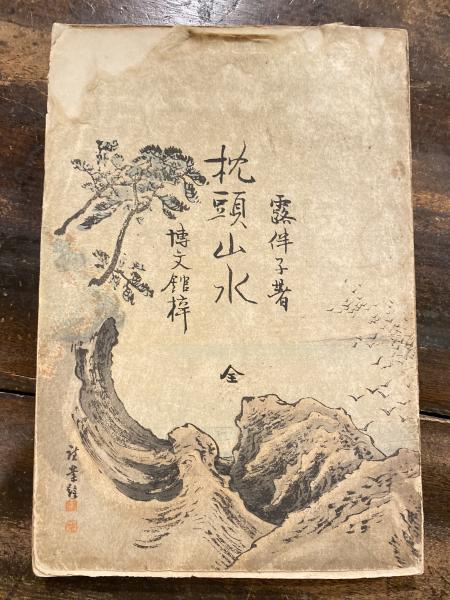 露伴子著
枕頭山水
全
博文館梓